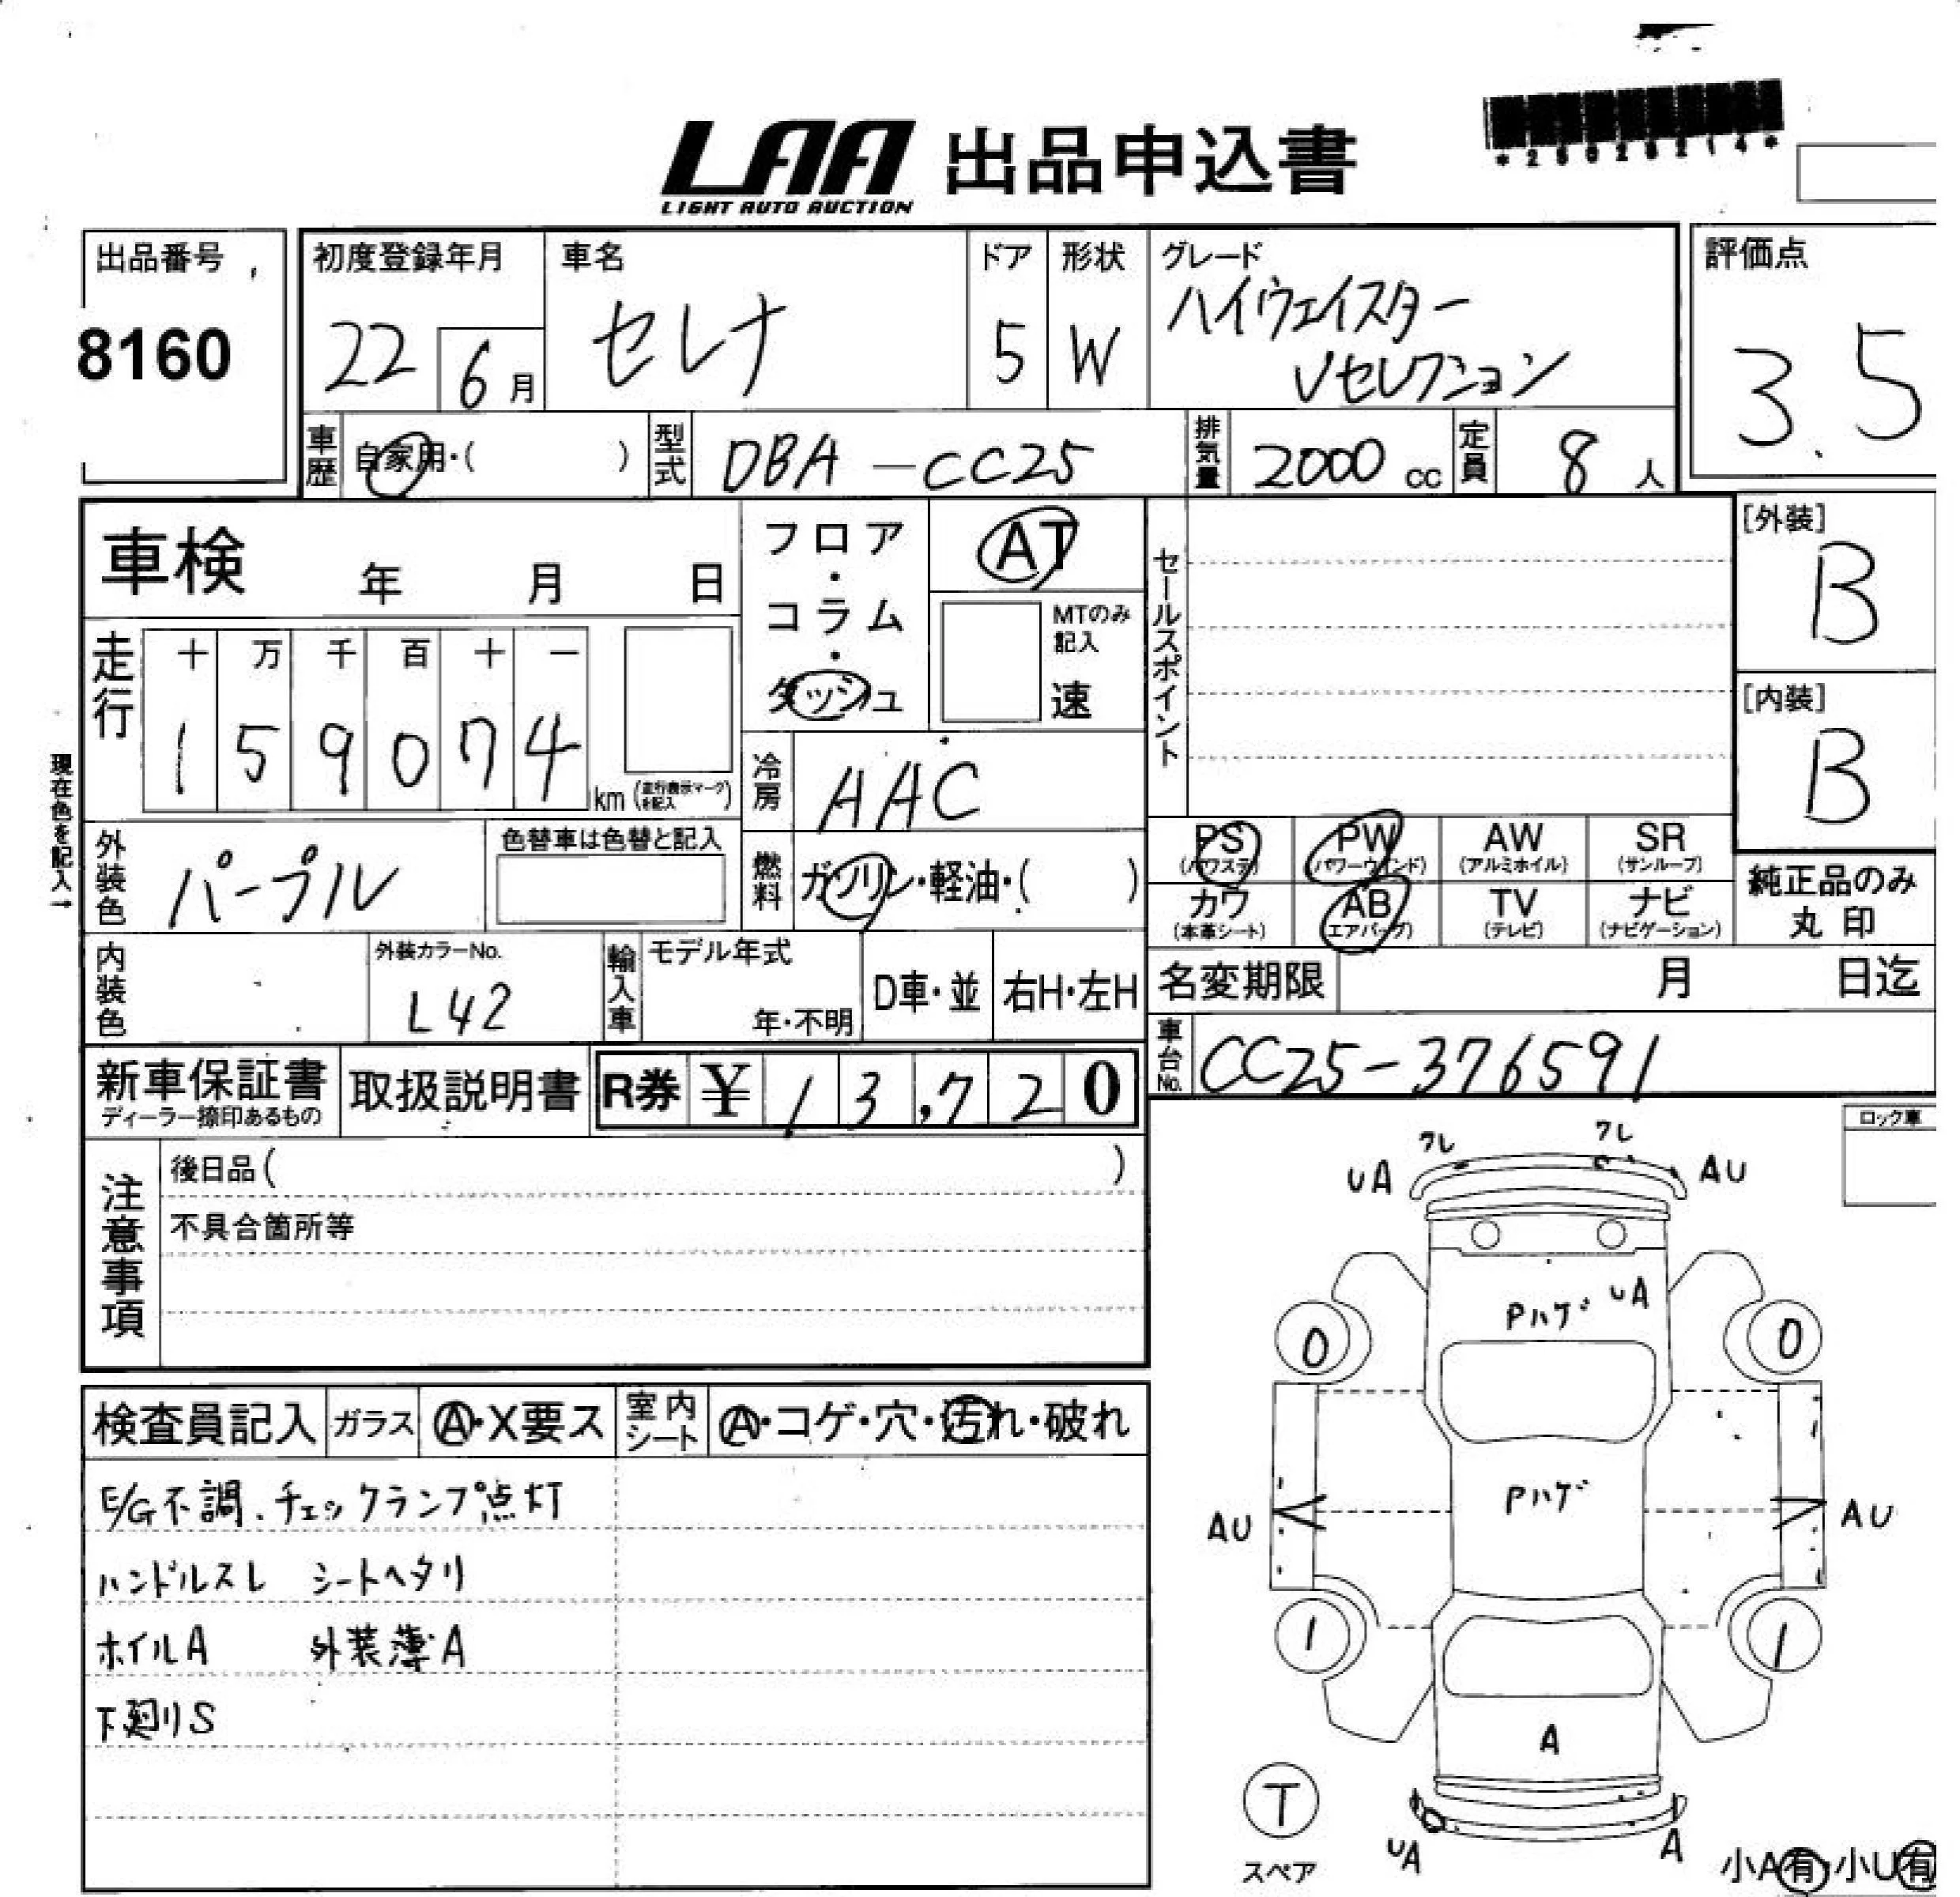 LAA 出品申込書
LIGHT AUTO AUCTION
出品番号
8160
初度登録年月
22 6月
車名
セレナ
ドア
5
形状
W
グレード
ハイウェイスター
Vセレクション
評価点
3.5
車歴
自家用・( )
型式
DBA-CC25
排気量
2000 cc
定員
8 人
[外装]
B
[内装]
B
車検 年 月 日
フロア・コラム・ダッシュ
AT
MTのみ記入
速
セールスポイント
走行
十 万 千 百 十 一
1 5 9 0 7 4 km
(走行表示マークを記入)
現在色を記入→
冷房
AAC
外装色
パープル
色替車は色替と記入
燃料
ガソリン・軽油・( )
PS (パワステ)
PW (パワーウインド)
AW (アルミホイル)
SR (サンルーフ)
カワ (本革シート)
AB (エアバッグ)
TV (テレビ)
ナビ (ナビゲーション)
純正品のみ
丸印
内装色
外装カラーNo.
L42
輸入車
モデル年式
年・不明
D車・並
右H・左H
名変期限 月 日迄
車台No.
CC25-376591
新車保証書
ディーラー捺印あるもの
取扱説明書
R券 ¥ 13,720
注意事項
後日品( )
不具合箇所等
ロック車
検査員記入
ガラス
A・X要ス
室内シート
A・コゲ・穴・汚れ・破れ
E/G不調.チェックランプ点灯
ハンドルスレ シートヘタリ
ホイルA 外装薄A
下廻りS
ワレ
ワレ
UA
AU
Pハゲ UA
0
0
Pハゲ
AU
AU
1
1
A
T
スペア
UA
A
小A有・小U有